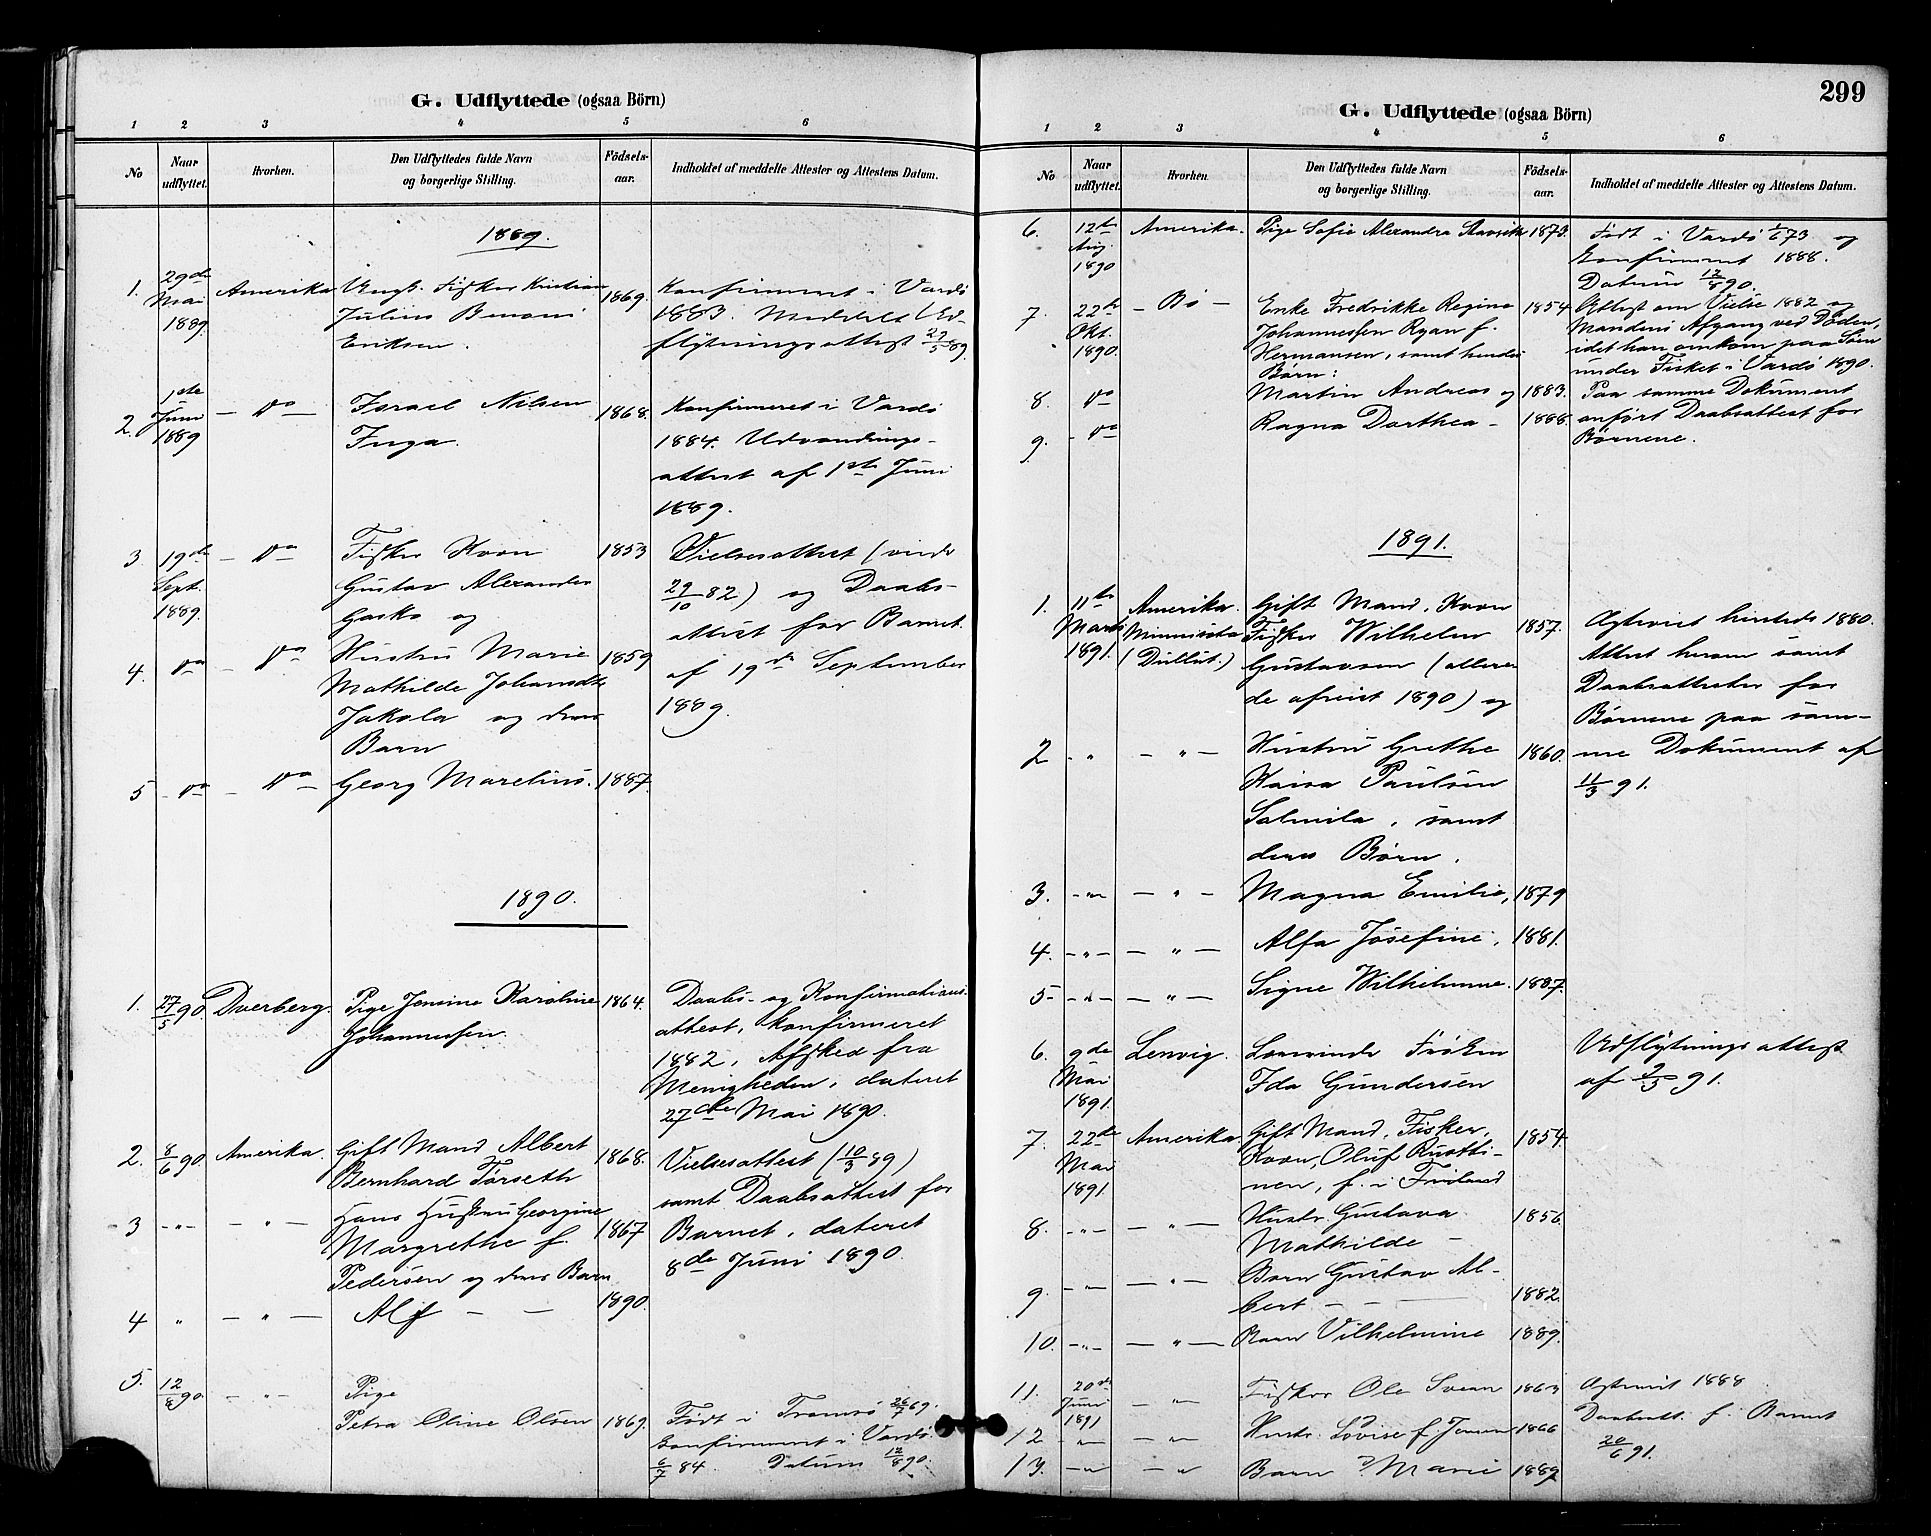 G. Udflyttede (ogsaa Börn)
1 2 3 4 5 6
No
Naar udflyttet.
Hvorhen.
Den Udflyttedes fulde Navn og borgerlige Stilling.
Födsels-aar.
Indholdet af meddelte Attester og Attestens Datum.
1889.
1. 29de Mai 1889 Amerika Ungk. Fisker Kristian Julius Benoni Eriksen. 1869. Konfirmeret i Vardö 1883. Meddelt Ud-
flytningsattest 27/5 89.
2. 1ste Juni 1889 - do - Israel Nilsen Inga. 1868. Konfirmeret i Vardö
1884. Udvandrings-
attest af 1ste Juni
1889.
3. 19de Sept. 1889. - do - Fisker Kvæn Gustav Alexander og 1853 Vielsesattest (viede
29/10 82) og Daabs-
attest for Barnet
af 19de September
1889.
4. do - do - Hustru Marie Mathilde Jakola og deres Barn 1859
5 - do - do - Georg Marelius. 1887.
1890.
1. 27/5 90. Dverberg. Pige Jensine Karoline Johannessen. 1864. Daabs- og Konfirmations-
attest, konfirmeret
1882, Afsked fra
Menigheden, dateret
27de Mai 1890.
2. 8/6 90. Amerika. Gift Mand Albert Bernhard Torseth 1868. Vielsesattest (10/3 89)
samt Daabsattest for
Barnet, dateret
8de Juni 1890.
3 - " - - " - Hans Hustru Georgine Margrethe f. Pedersen og deres Barn 1867
4 " - " - Alf - - 1890.
5. 12/8 90. - " - Pige Petra Oline Olsen 1869. Födt i Tromsö 26/7 69.
Konfirmeret i Vardö
6/7 84. Datum 12/8 90.
299
G. Udflyttede (ogsaa Börn)
1 2 3 4 5 6
No
Naar udflyttet.
Hvorhen.
Den Udflyttedes fulde Navn og borgerlige Stilling.
Födsels-aar.
Indholdet af meddelte Attester og Attestens Datum.
6. 12te Aug. 1890 Amerika. Pige Sofie Alexandra 1873. Födt i Vardö 73 og
Konfirmeret 1888.
Datum 12/8 90.
7. 22de Okt. 1890. - Bö - Enke Fredrikke Regine Johannessen Ryan f. Hermansen, samt hendes Børn: 1854 Attest om Vielse 1882 og
Mandens Afgang ved Döden,
idet han omkom paa Søen
under Fisket i Vardö 1890.
8. do Martin Andreas og 1883. Paa samme Dokument
anført Daabsattest for
Børnene.
9. - do Ragna Dorthea - 1888.
1891.
1. 11te Marts 1891. Amerika. Minnesota (Dullut.) Gift Mand, Kvæn Fisker Wilhelm Gustavsen (allere-
de afreist 1890) og 1857. Ægteviet hersteds 1880.
Attest herom samt
Daabsattester for
Børnene paa sam-
me Dokument af
11/3 91.
2 - " - - " - Hustru Grethe Kaisa Paulsen Salmila, samt deres Børn. 1860.
3. - " - - " - Magna Emilie, 1879
4. - " - - " - Alfa Josefine, 1881.
5 - " - - " - Signe Wilhelmine. 1887.
6. 9de Mai 1891. Lenvig. Lærerinde Frøken Ida Gundersen Udflytningsattest
af 9/5 91.
7. 22de Mai 1891. Amerika Gift Mand, Fisker, Kvæn, Oluf Ruotti-
nen, f. i Finland 1854
8. - " - - " - Hustr. Gustava Mathilde - 1856.
9. - " - - " - Barn Gustav Al-
bert - 1882.
10. - " - - " - Barn Vilhelmine 1889.
11. 20de Juni 1891 - " - Fisker Ole Svean 1863 Ægteviet 1888
Daabsatt. f. Barnet
20/6 91.
12 - " - - " - Hustr. Lovise f. Jensen 1866
13. - " - - " - Barn ? Marie 1889